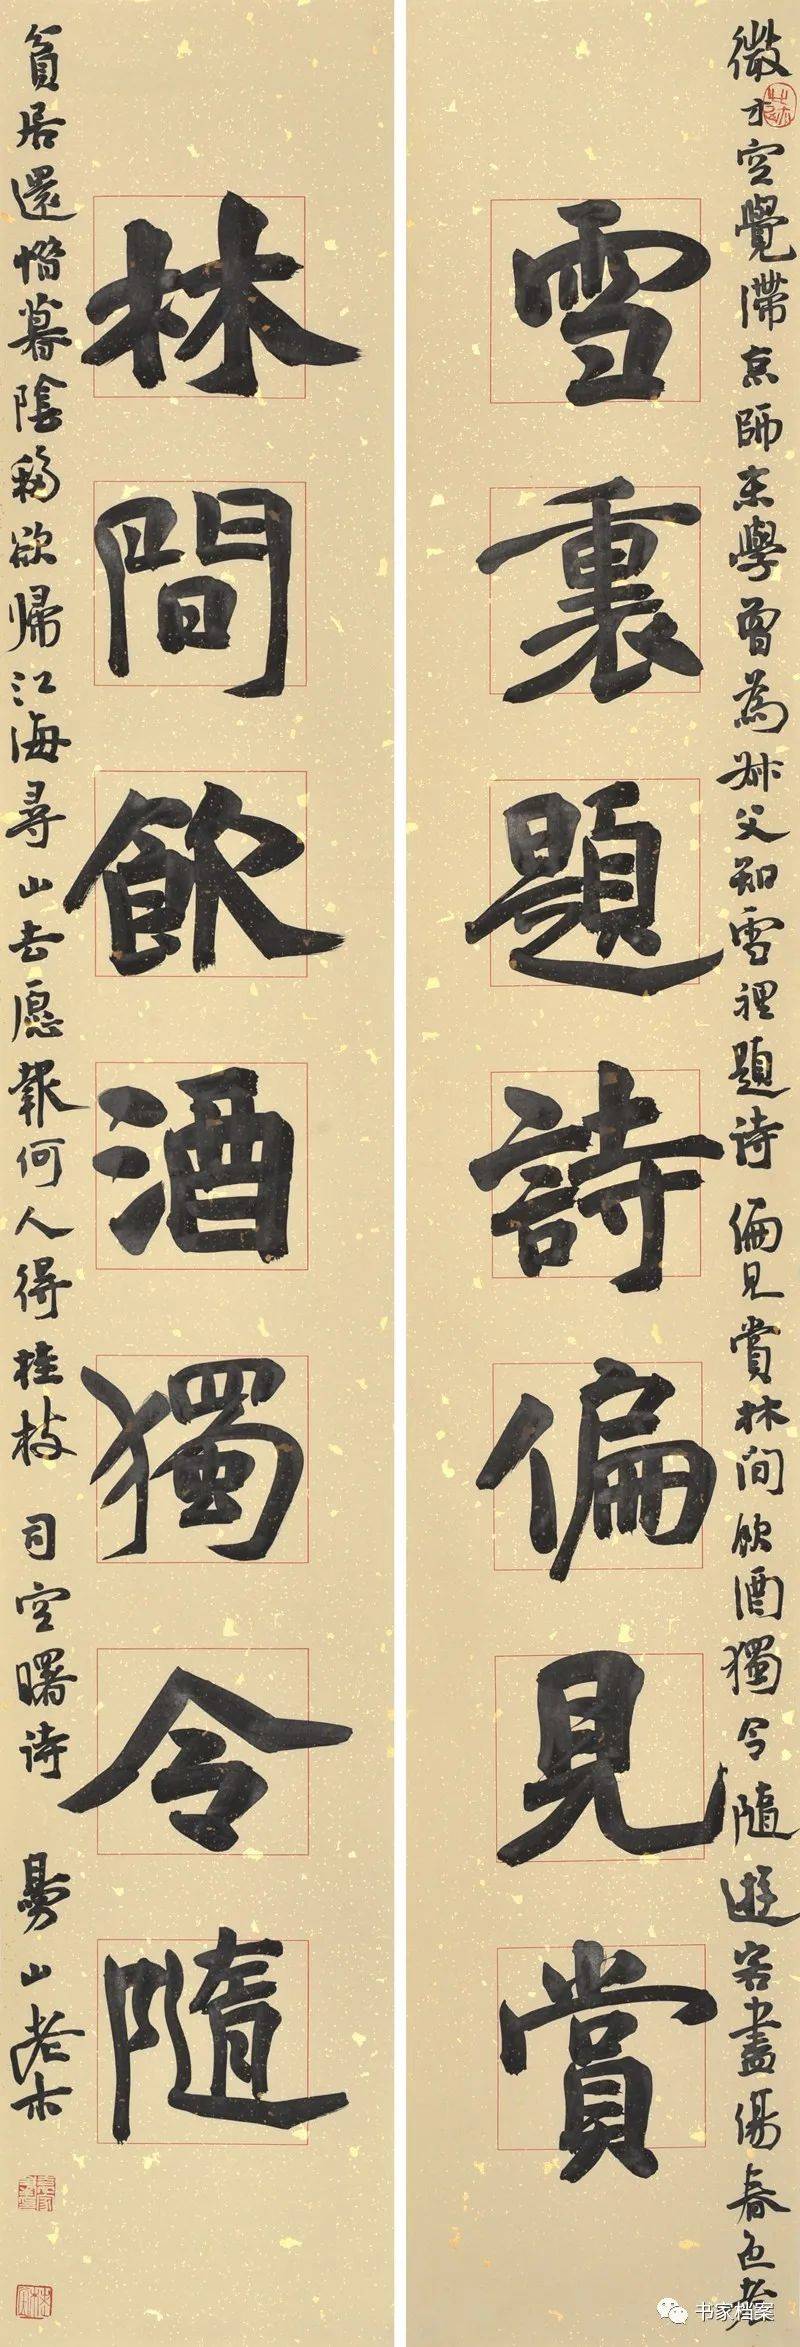 微才空覺滯京師末學曾為叔父知雪裡題诗偏見賞林间飲酒獨令隨遊客盡傷春色老
雪裏題詩偏見賞
林間飲酒獨令隨
貧居還惜暮陰移欲帰江海尋山去愿報何人得桂枝 司空曙诗 山老木
书家档案